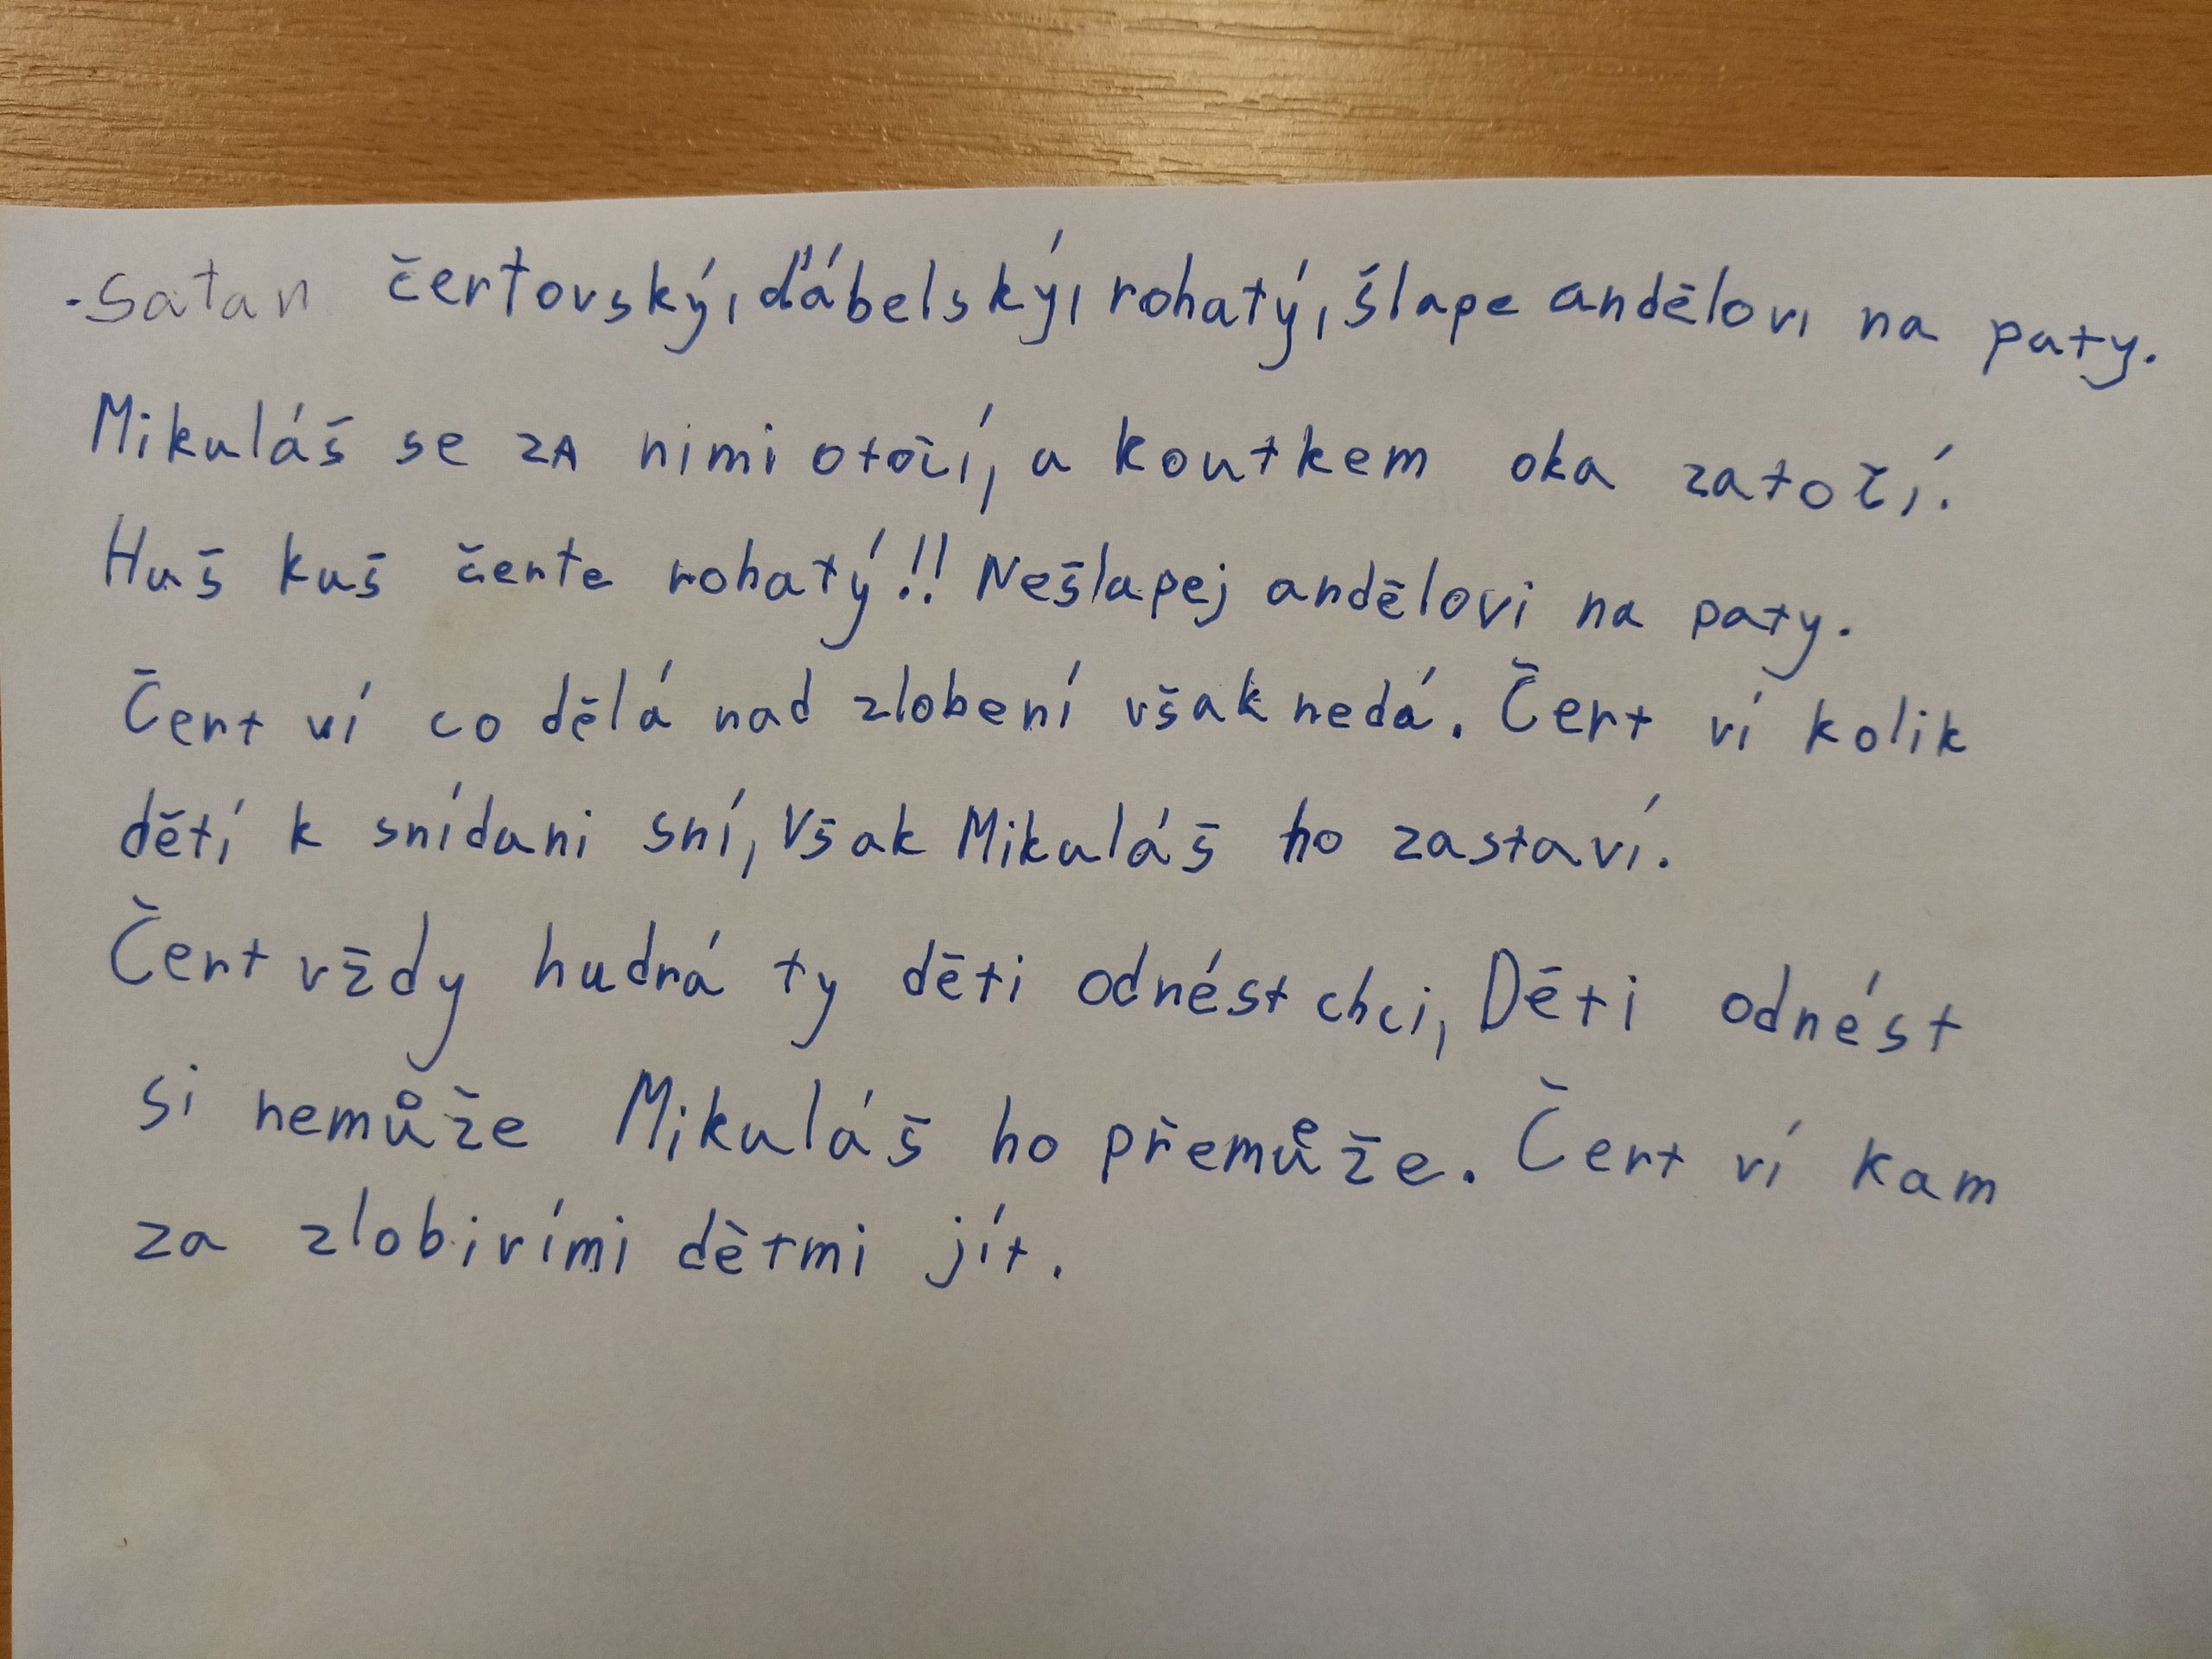 -Satan čertovský, ďábelský, rohatý, šlape andělovi na paty.
Mikuláš se zA nimi otočí, a koutkem oka zatočí.
Huš kuš čerte rohatý!! Nešlapej andělovi na paty.
Čert ví co dělá nad zlobení však nedá. Čert ví kolik
dětí k snídani sní, Však Mikuláš ho zastaví.
Čert vždy hudrá ty děti odnést chci, Děti odnést
si nemůže Mikuláš ho přemůže. Čert ví kam
za zlobivími dětmi jít.